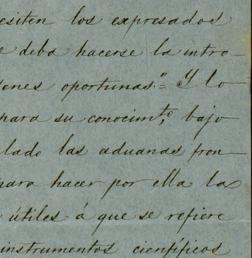 esiten los expresados
e deba hacerse la intro-
enes oportunas"= Y lo
para su conocimto, bajo
lado las aduanas fron-
para hacer por ella la
útiles á que se refiere
instrumentos científicos